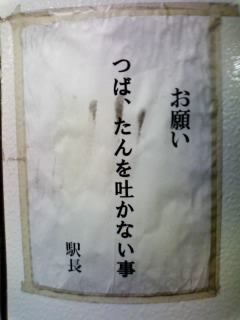 お願い
つば、たんを吐かない事
駅長